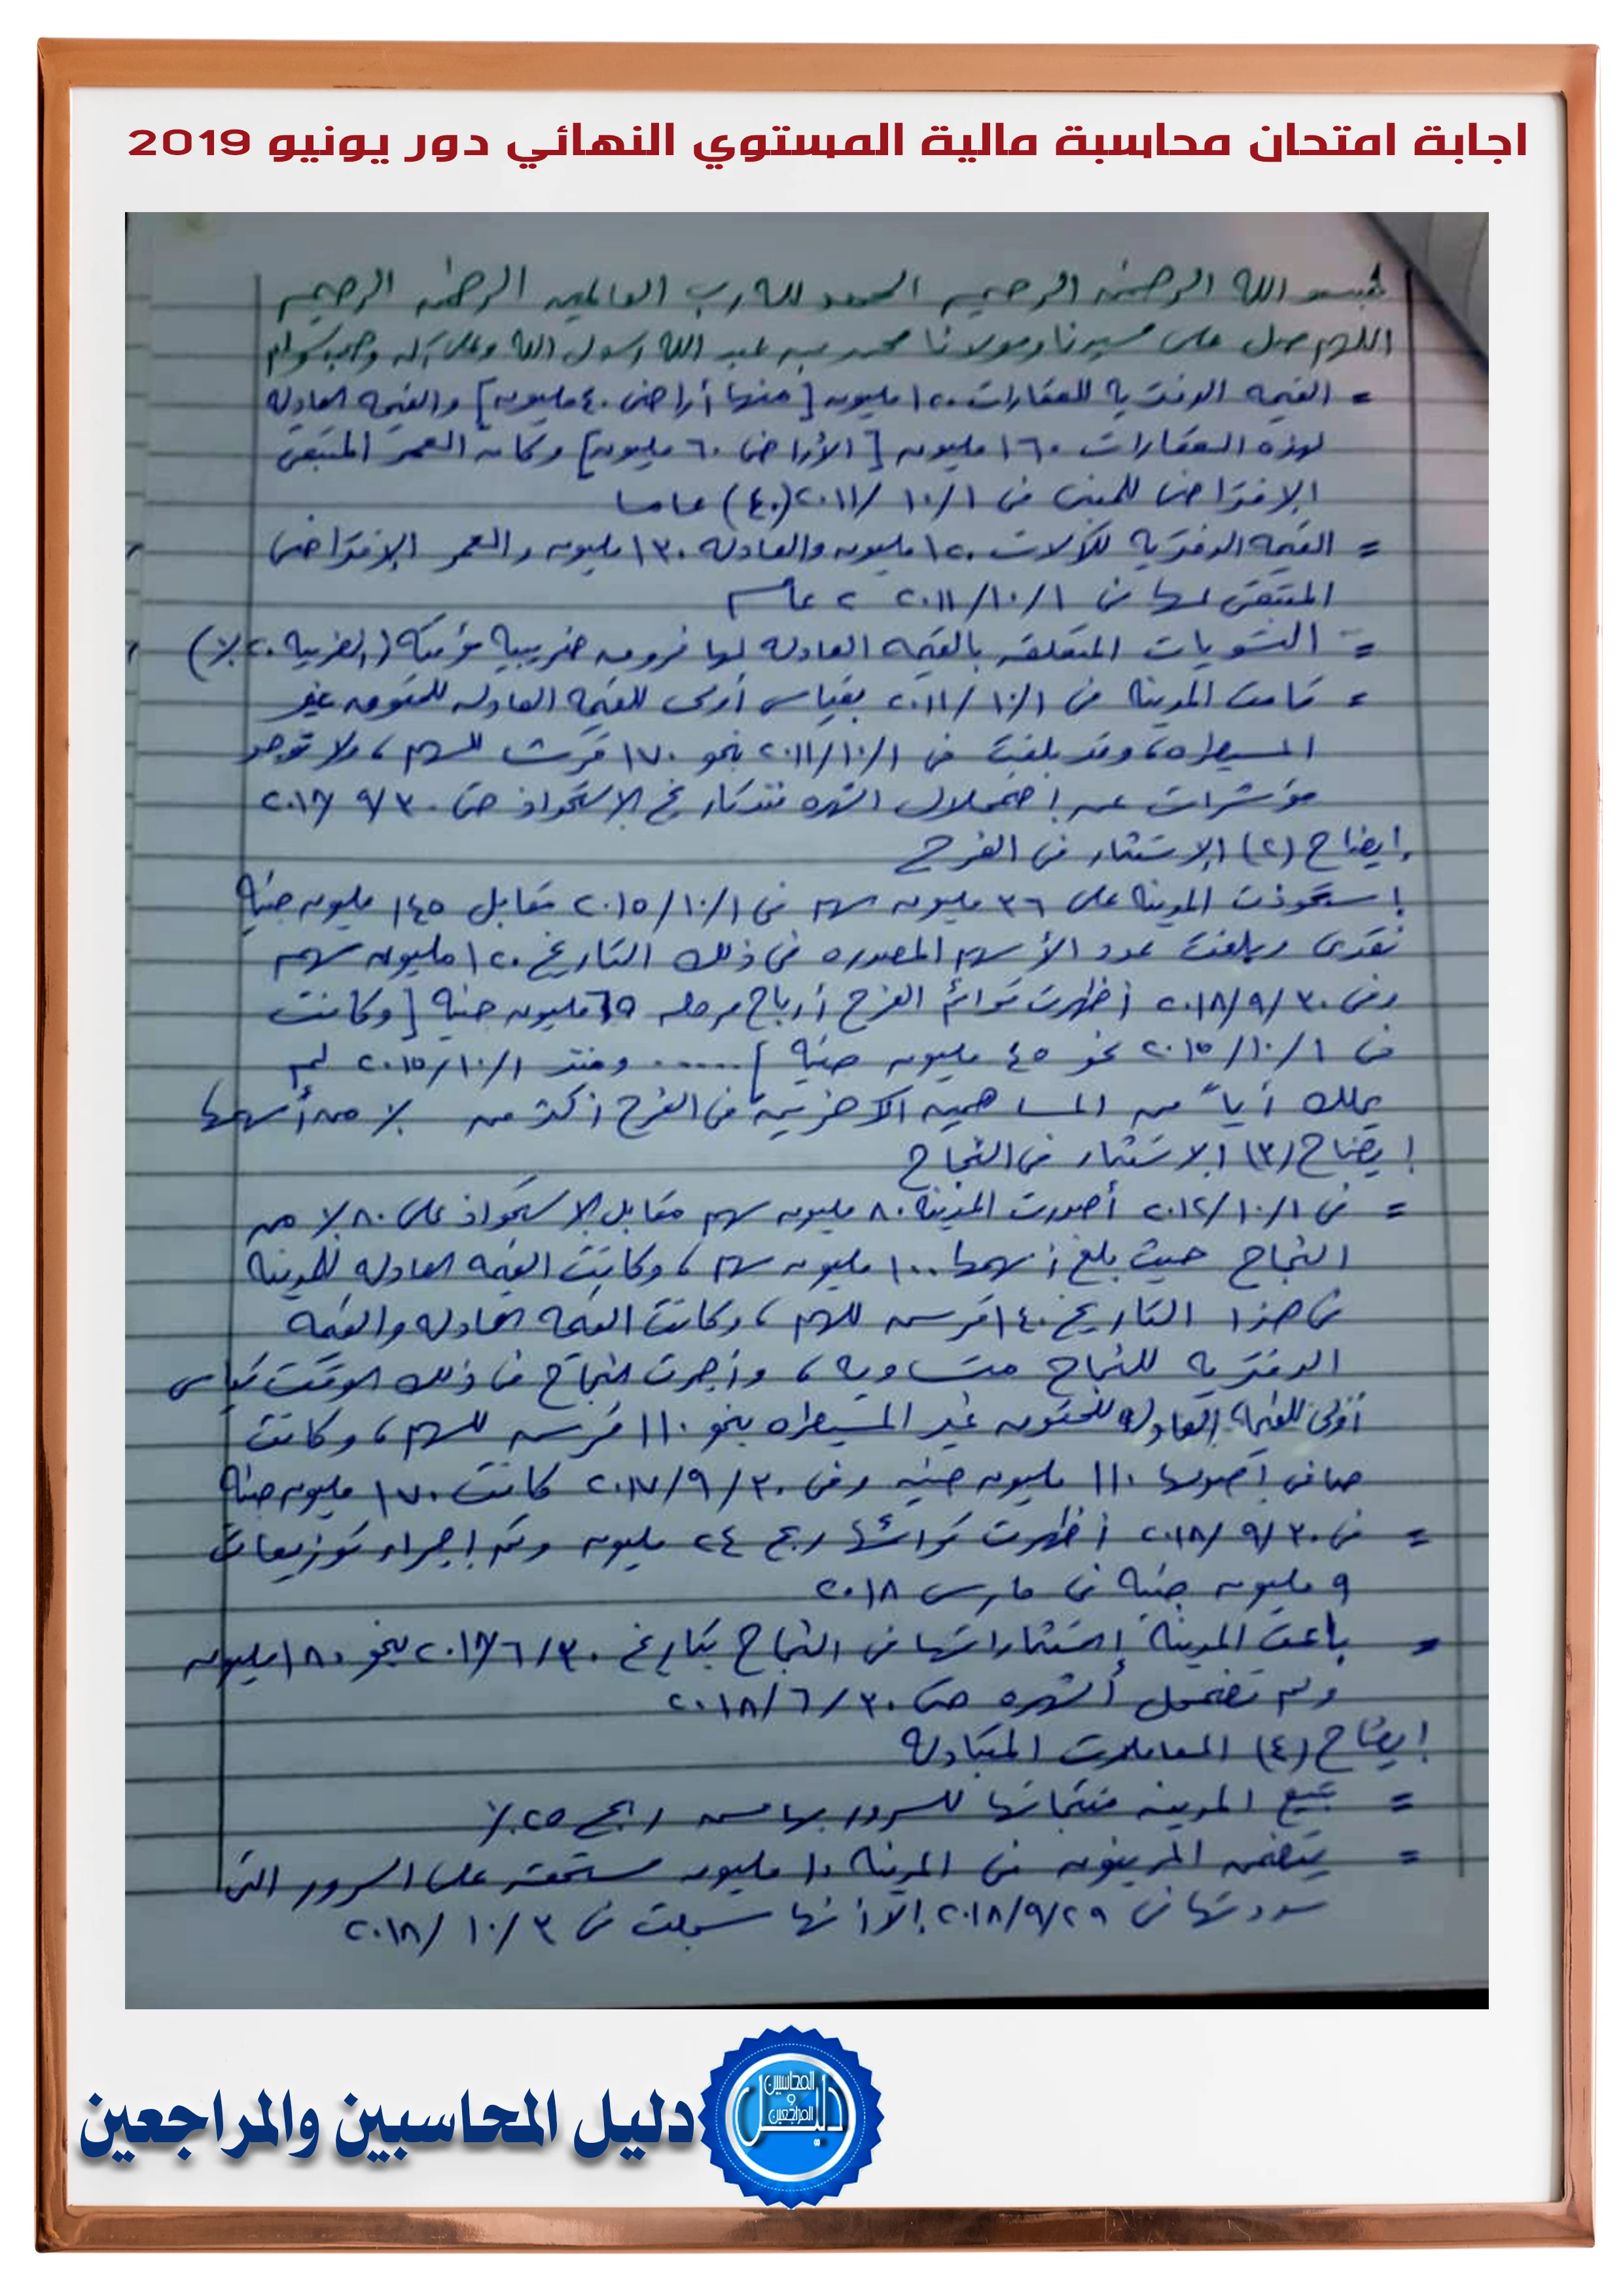 اجابة امتحان محاسبة مالية المستوي النهائي دور يونيو 2019
بسم الله الرحمن الرحيم الحمد لله رب العالمين الرحمن الرحيم
اللهم صل على سيدنا ومولانا محمد بن عبد الله رسول الله وعلى آله وصحبه وسلم
= القيمه الدفتريه للعقارات ١٢٠ مليون [منها أراضى ٤٠ مليون] والقيمه العادله
لهذه العقارات ١٦٠ مليون [الأراضى ٦٠ مليون] وكان العمر المتبقى
الإفتراضى للمبنى فى ٢٠١١/١٠/١ (٤٠) عاما
= القيمه الدفتريه للآلات ١٢٠ مليون والعادله ١٣٠ مليون والعمر الإفتراضى
المتبقى لها فى ٢٠١١/١٠/١ ٢ عام
= التسويات المتعلقه بالقيمه العادله لها فروق ضريبية مؤقته (الضريبه ٢٠٪)
= قامت المدينة فى ٢٠١١/١٠/١ بقياس أولى للقيمه العادله للحقوق غير
المسيطره، وقد بلغت فى ٢٠١١/١٠/١ نحو ١٧٠ قرش للسهم، ولا توجد
مؤشرات عن إضمحلال الشهره منذ تاريخ الإستحواذ حتى ٩/٣٠/
إيضاح (٢) الإستثمار فى الفرح
إستحوذت المدينة على ٣٦ مليون سهم فى ٢٠١٥/١٠/١ مقابل ١٤٥ مليون جنية
نقدى وبلغت عدد الأسهم المصدره فى ذلك التاريخ ١٢٠ مليون سهم
وفى ٢٠١٨/٩/٣٠ أظهرت قوائم الفرح أرباح مرحله ٦٥ مليون جنية [وكانت
فى ٢٠١٥/١٠/١ نحو ٤٥ مليون جنية] ..... ومنذ ٢٠١٥/١٠/١ لم
يملك أياً من المساهمين الآخرين فى الفرح أكثر من ٪ من أسهمها
إيضاح (٣) الاستثمار فى النجاح
= فى ٢٠١٢/١٠/١ أصدرت المدينة ٨٠ مليون سهم مقابل الإستحواذ على ٨٠٪ من
النجاح حيث بلغ أسهمها ١٠٠ مليون سهم، وكانت القيمه العادله للمدينة
فى هذا التاريخ ١٤٠ قرش للسهم، وكانت القيمه العادله والقيمه
الدفتريه للنجاح متساويه، وأجرت النجاح فى ذلك الوقت قياس
أولى للقيمة العادله للحقوق غير المسيطره بنحو ١١٠ قرش للسهم، وكانت
صافى أصولها ١١٠ مليون جنيه وفى ٢٠١٧/٩/٣٠ كانت ١٧٠ مليون جنية
= فى ٢٠١٨/٩/٣٠ أظهرت قوائمها ربح ٢٤ مليون وتم إجراء توزيعات
٩ مليون جنية فى مارس ٢٠١٨
= باعت المدينة إستثماراتها فى النجاح بتاريخ ٢٠١٨/٦/٣٠ بنحو ١٨٠ مليون
ولم تضمحل الشهره حتى ٢٠١٨/٦/٣٠
إيضاح (٤) المعاملات المتبادله
= تبيع المدينه منتجاتها للسرور بهامش ربح ٢٥٪
= يتضمن المدينون فى المدينة ١٠ مليون مستحقه على السرور التى
سددتها فى ٢٠١٨/٩/٢٩ إلا أنها سجلت فى ٢٠١٨/١٠/٣
دليل المحاسبين والمراجعين
دليل المحاسبين و المراجعين